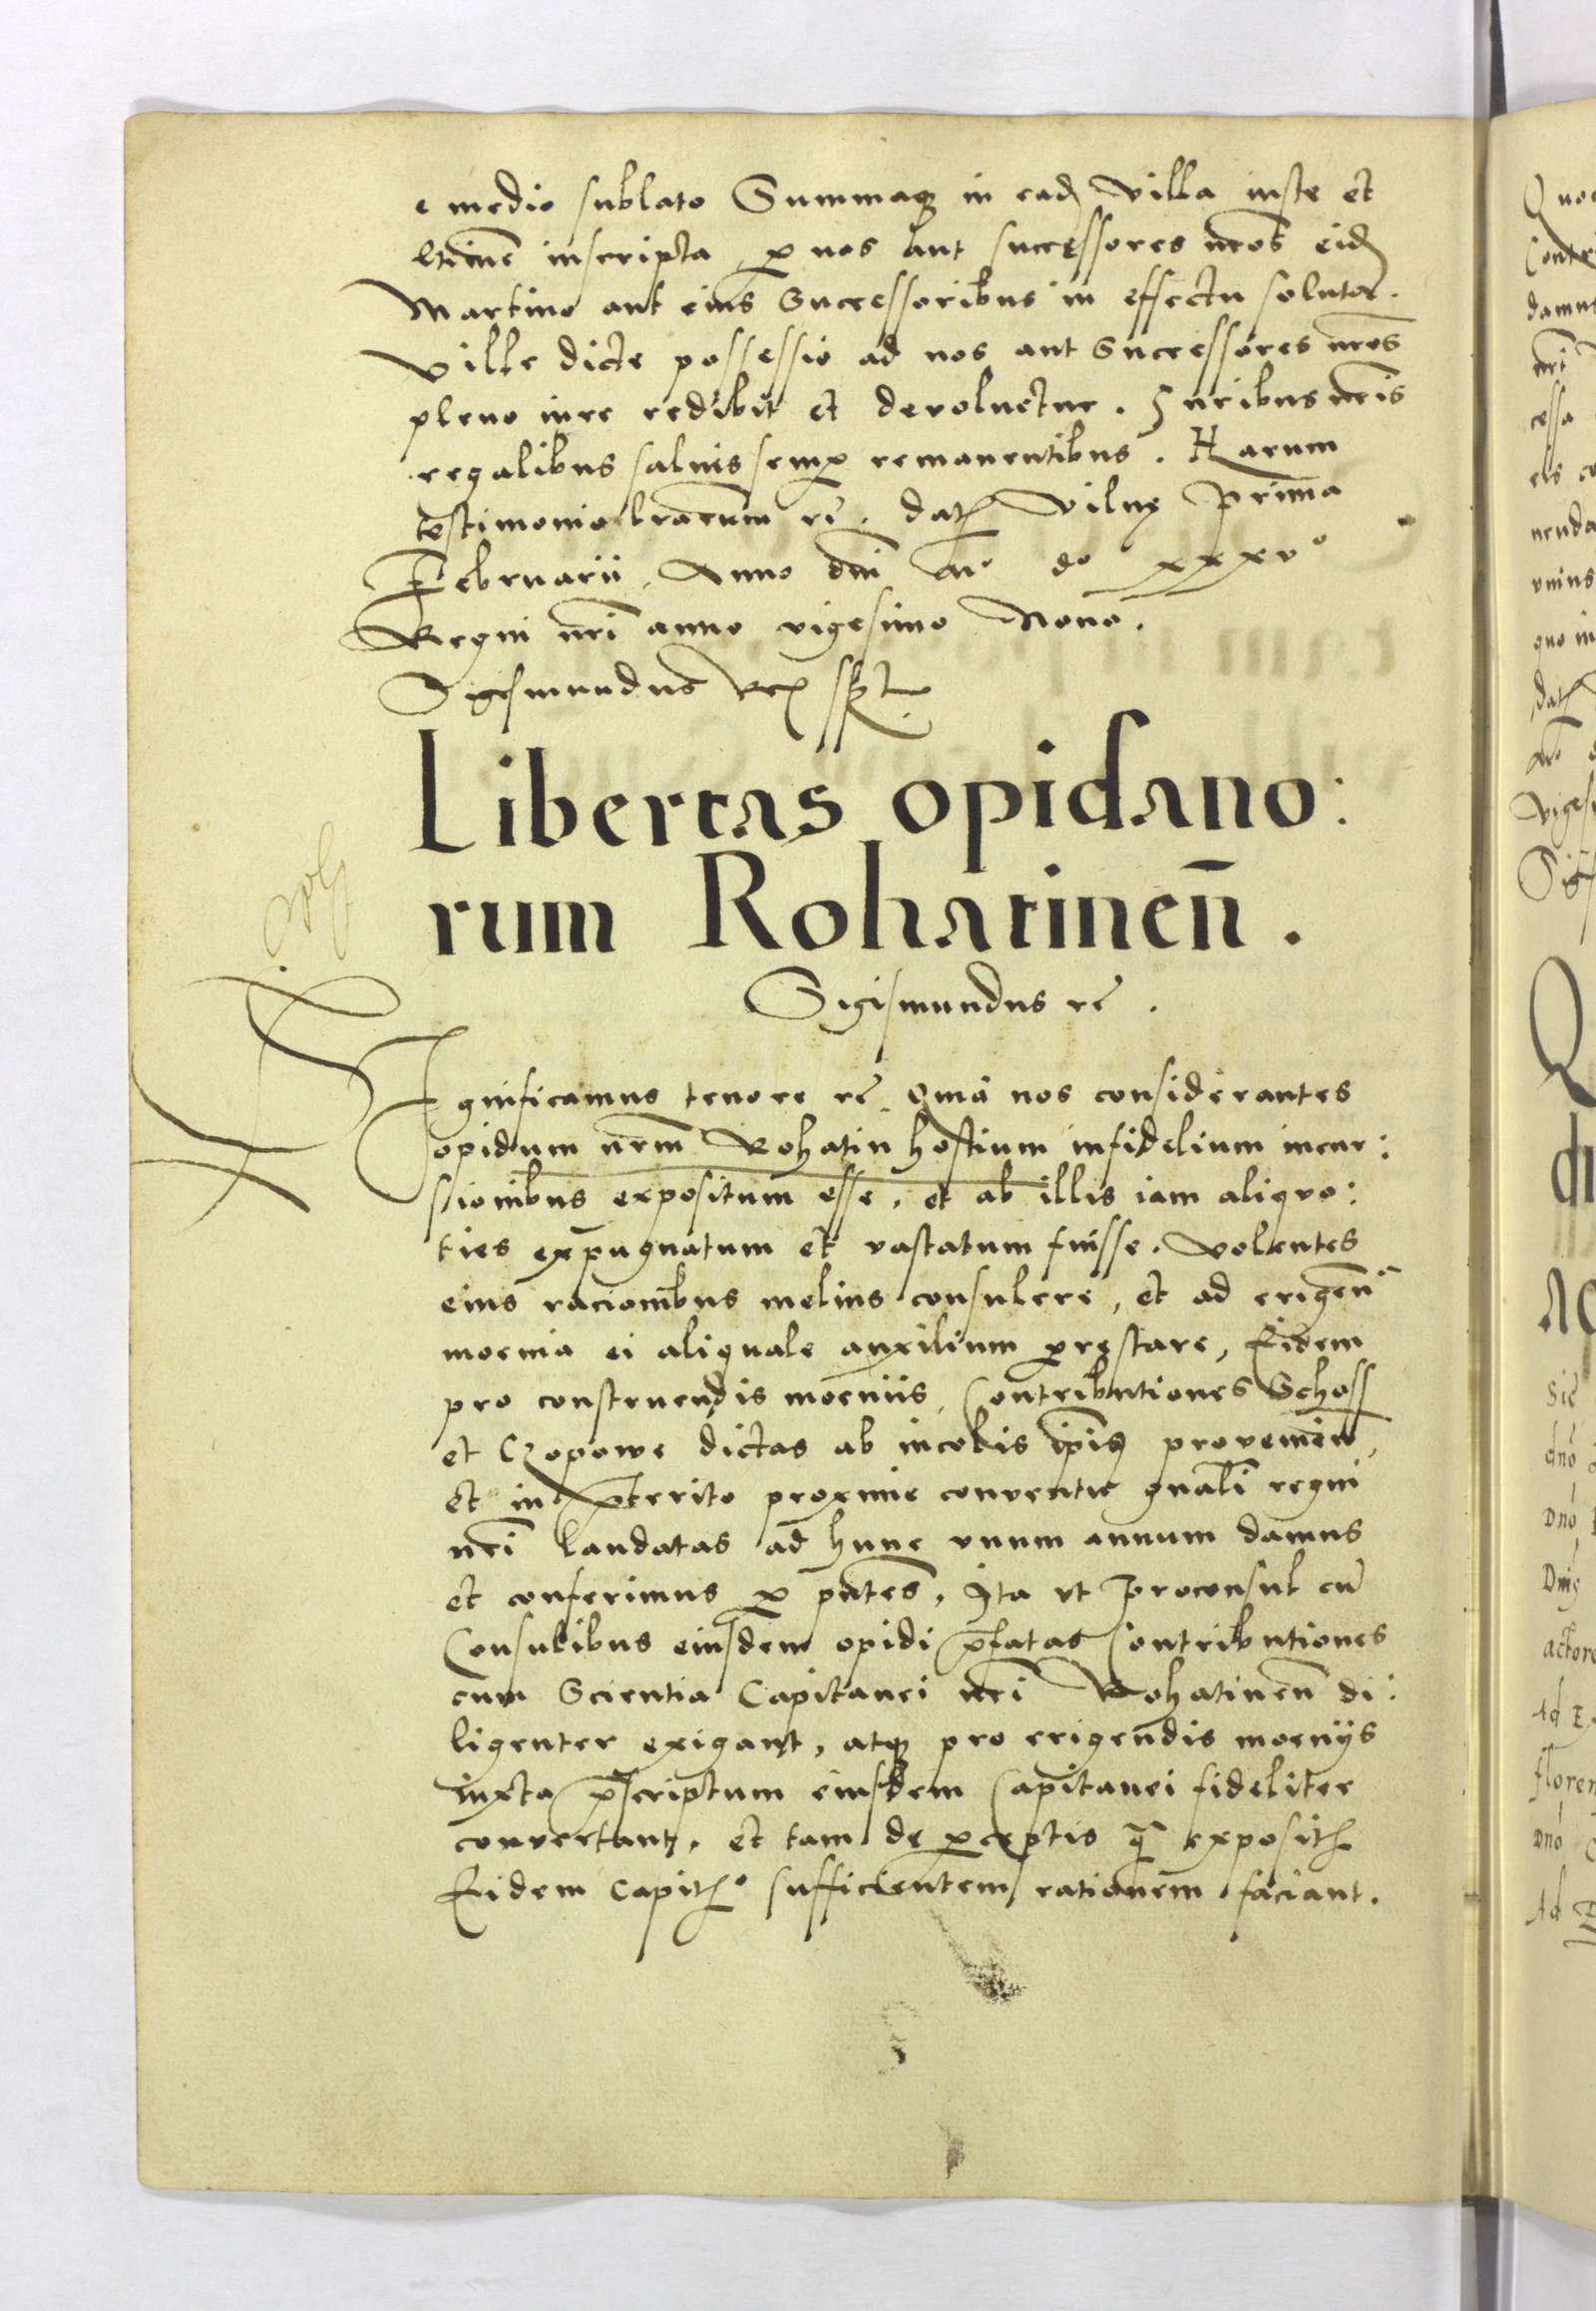 e medio sublato Summaq₃ in ead villa iuste et
ltime inscripta, p nos aut successores nros eid
Martino aut eius Successoribus in effectu soluta.
Ville dicte possessio ad nos aut Successores nros
pleno iure redibit et devoluetur. Juribus nris
regalibus saluis semp remanentibus. Harum
testimonio lrarum rc. dat Vilnę Prima
Februarii, Anno dni Mo do xxxvo
Regni nri anno vigesimo Nono.
Sigismundus Rex sst
Libertas opidano:
rum Rohatinen̄.
Sigismundus rc.
Significamus tenore rc. Quia nos considerantes
opidum nrm Rohatin hostium infidelium incur:
sionibus expositum esse, et ab illis iam aliquo:
ties expugnatum et vastatum fuisse. Volentes
eius racionibus melius consulere, et ad erigen̄
moenia ei aliquale auxilium prestare, Eidem
pro construendis moeniis, Contributiones Schoss
et Czopowe dictas ab incolis ipius provenien̄,
et in pterito proxime conventu gnali regni
nri laudatas ad hunc vnum annum damus
et conferimus p pntes, Ita vt Proconsul cū
Consulibus eiusdem opidi pfatas Contributiones
cum Scientia Capitanei nri Rohatinen̄ di:
ligenter exigant, atq₃ pro erigendis moenijs
iuxta pscriptum eiusdem Capitanei fideliter
convertant, et tam de pceptis q̄ exposit
Eidem Capito sufficientem rationem faciant.